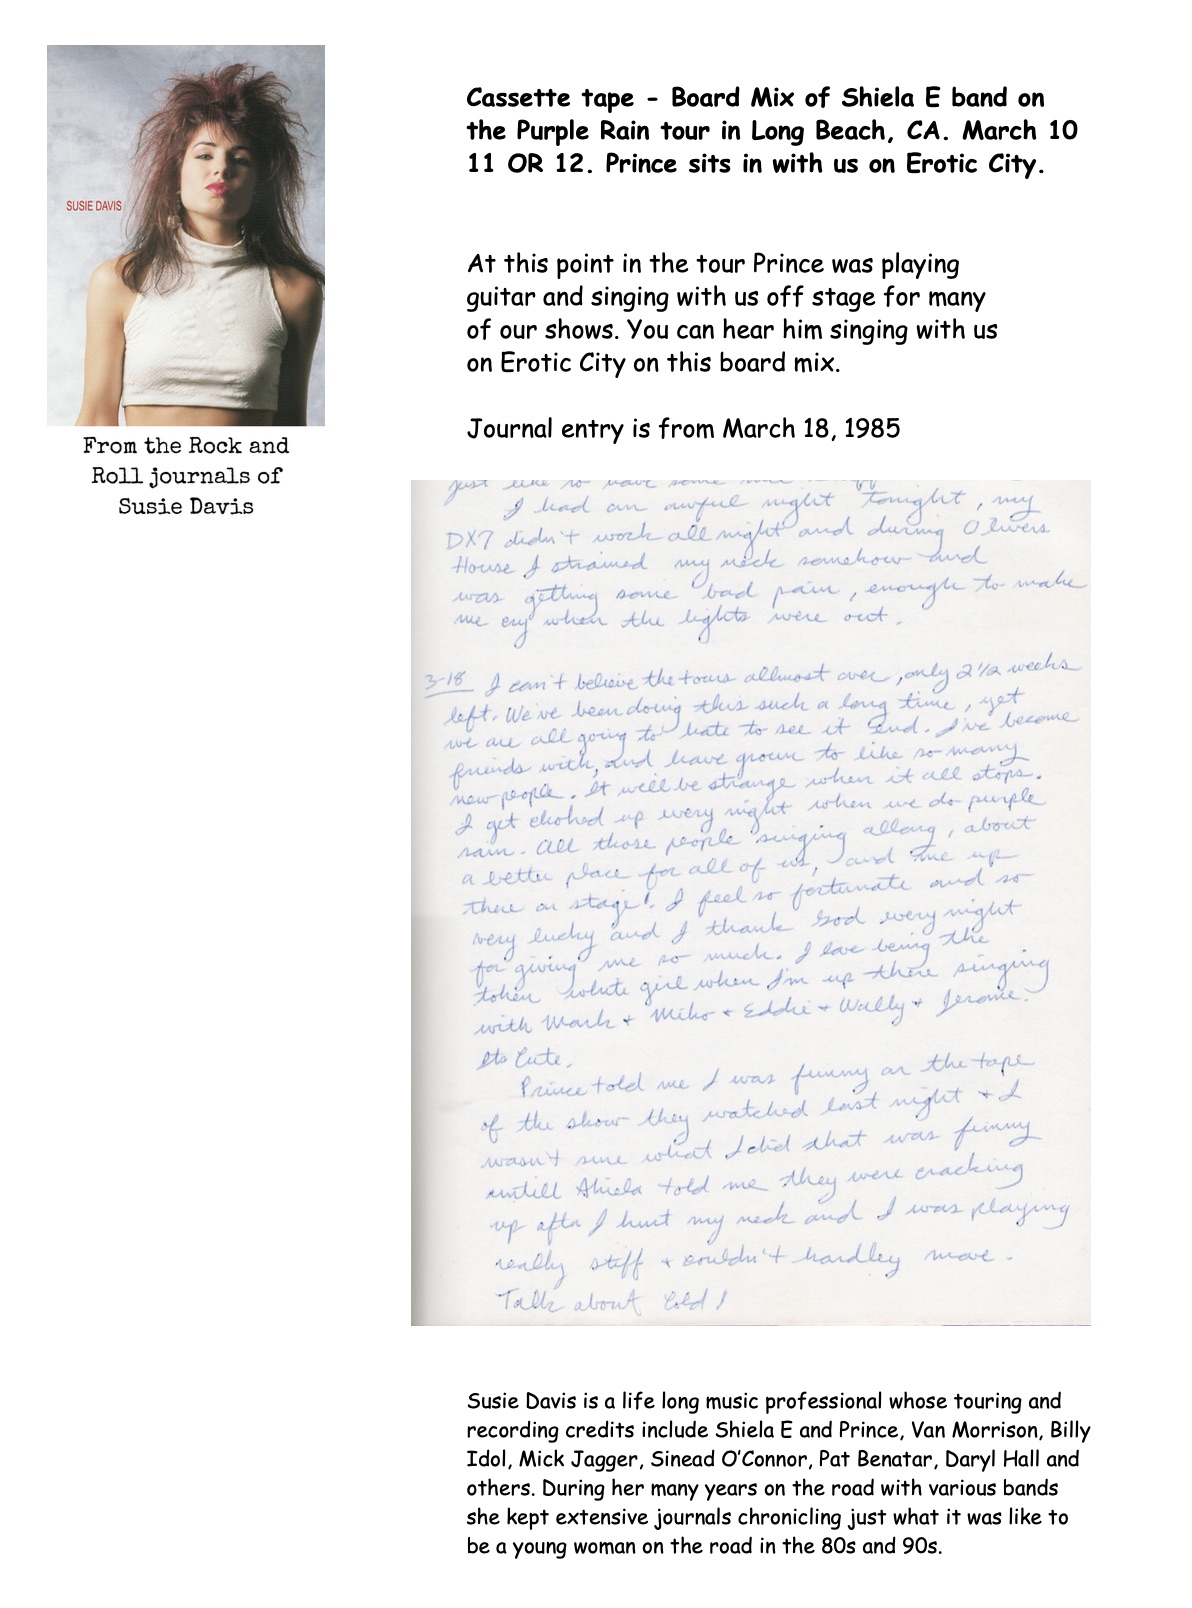 SUSIE DAVIS
From the Rock and
Roll journals of
Susie Davis
Cassette tape - Board Mix of Shiela E band on
the Purple Rain tour in Long Beach, CA. March 10
11 OR 12. Prince sits in with us on Erotic City.
At this point in the tour Prince was playing
guitar and singing with us off stage for many
of our shows. You can hear him singing with us
on Erotic City on this board mix.
Journal entry is from March 18, 1985
just like to have some
I had an awful night tonight, my
DX7 didn't work all night and during Olivers
House I strained my neck somehow and
was getting some bad pain, enough to make
me cry when the lights were out.
3-18 I can't believe the tours allmost over, only 2 1/2 weeks
left. We've been doing this such a long time, yet
we are all going to hate to see it end. I've become
friends with, and have grown to like so many
new people. It will be strange when it all stops.
I get choked up every night when we do purple
rain. All those people singing allong, about
a better place for all of us, and me up
there on stage! I feel so fortunate and so
very lucky and I thank God every night
for giving me so much. I love being the
token white girl when I'm up there singing
with Mark + Miko + Eddie + Wally + Jerome.
Its Cute.
Prince told me I was funny on the tape
of the show they watched last night + I
wasn't sure what I did that was funny
untill Shiela told me they were cracking
up after I hurt my neck and I was playing
really stiff + couldn't hardley move.
Talk about Cold!
Susie Davis is a life long music professional whose touring and
recording credits include Shiela E and Prince, Van Morrison, Billy
Idol, Mick Jagger, Sinead O'Connor, Pat Benatar, Daryl Hall and
others. During her many years on the road with various bands
she kept extensive journals chronicling just what it was like to
be a young woman on the road in the 80s and 90s.